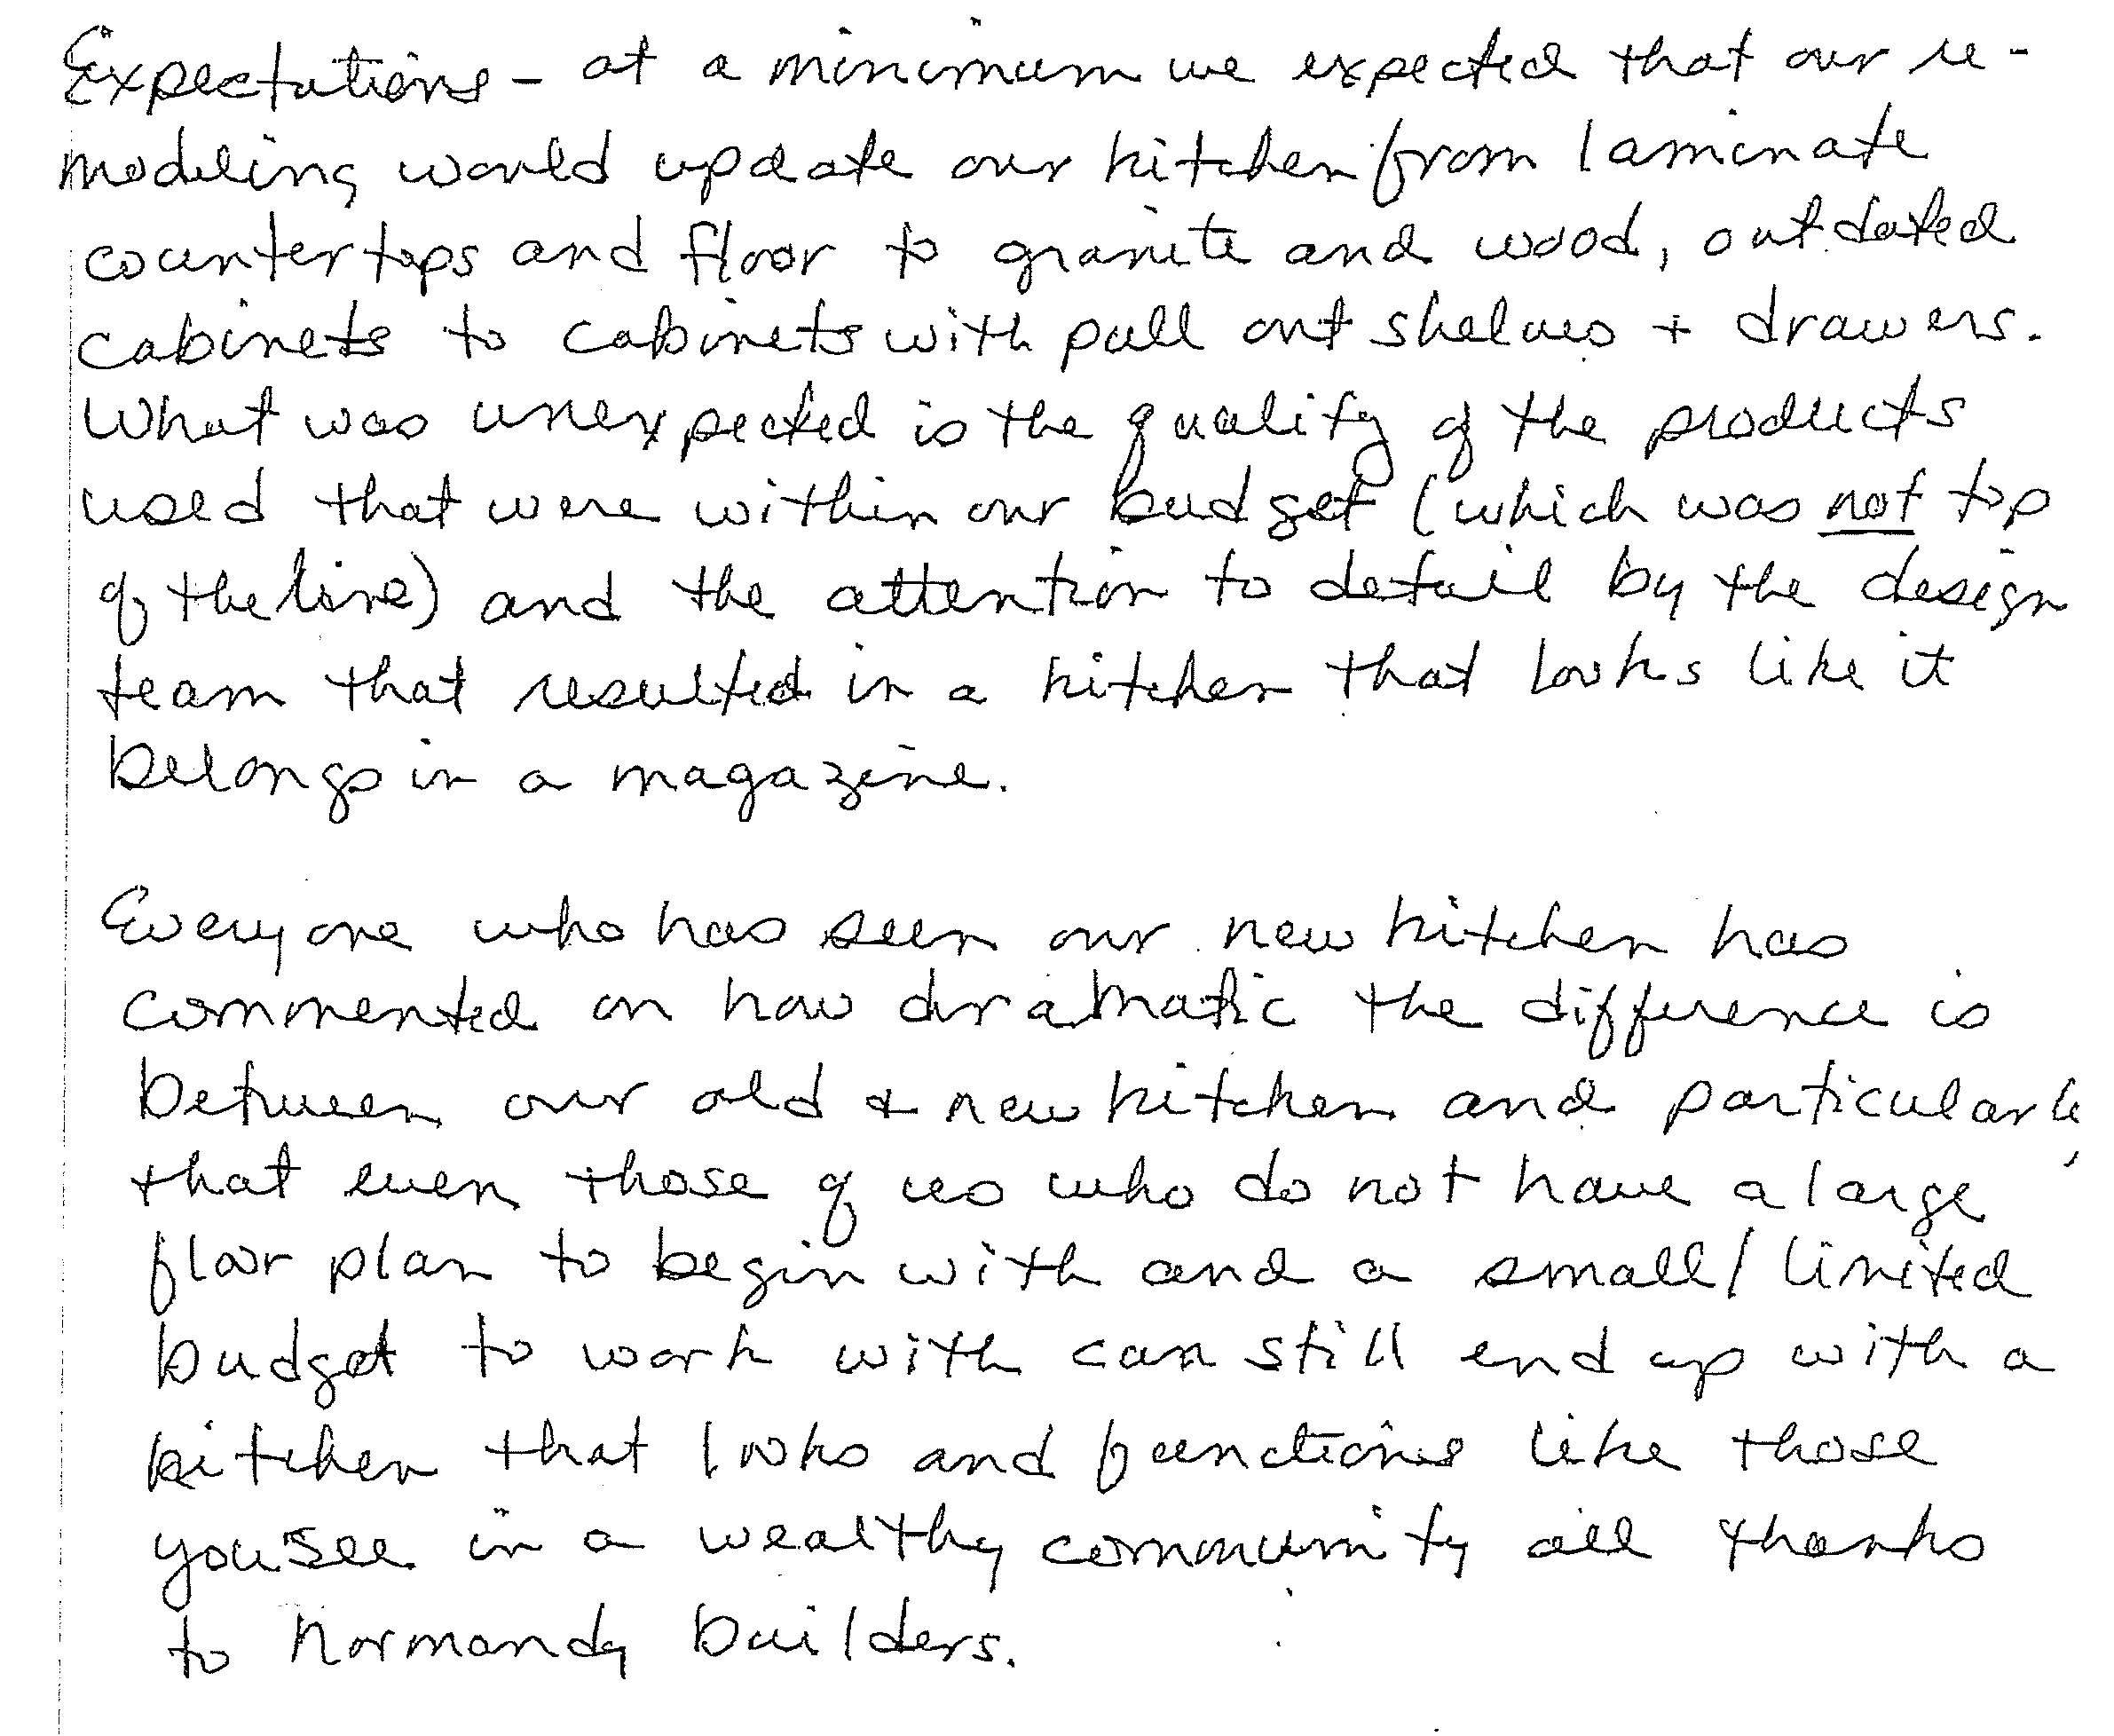 Expectations - at a minimum we expected that our re-
modeling would update our kitchen from laminate
countertops and floor to granite and wood, outdated
cabinets to cabinets with pull out shelves + drawers.
What was unexpected is the quality of the products
used that were within our budget (which was not top
of the line) and the attention to detail by the design
team that resulted in a kitchen that looks like it
belongs in a magazine.

Everyone who has seen our new kitchen has
commented on how dramatic the difference is
between our old + new kitchen and particularly
that even those of us who do not have a large
floor plan to begin with and a small/limited
budget to work with can still end up with a
kitchen that looks and functions like those
you see in a wealthy community all thanks
to Normandy builders.